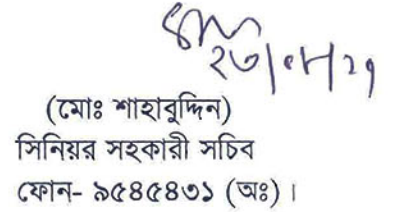 (মোঃ শাহাবুদ্দিন)
সিনিয়র সহকারী সচিব
ফোন- ৯৫৪৫৪৩১ (অঃ)।